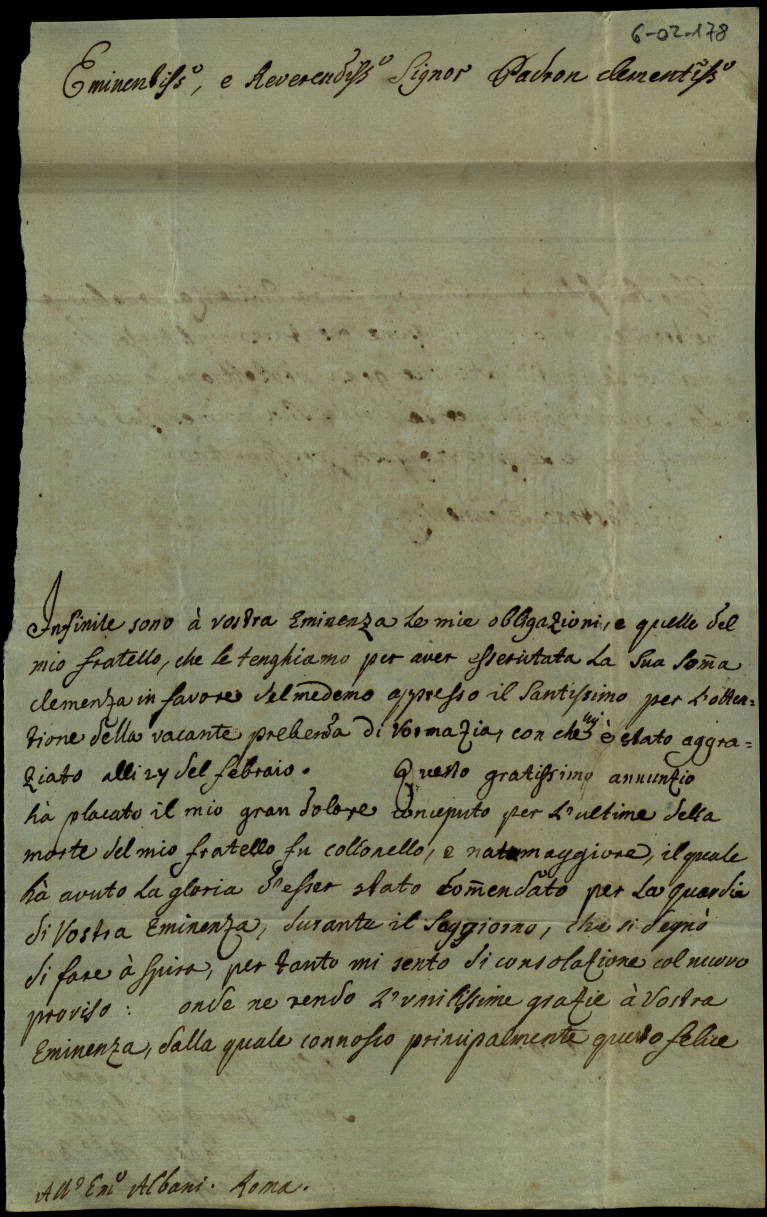 6-02-178
Eminentiss.º, e Reverendiss.º Signor Padron clementiss.º
Infinite sono à vostra Eminenza le mie obligazioni, e quelle del
mio fratello, che le tenghiamo per aver essecutata la Sua Som̃a
clemenza in favore del medemo appresso il Santissimo per l'otten=
zione della vacante prebenda di Vormazia, con che è stato aggra=
ziato alli 27 del febraio. Questo gratissimo annunzio
hà placato il mio gran dolore conceputo per l'ultime della
morte del mio fratello fu collonello, e nat maggiore, il quale
hà avuto la gloria d'esser stato com̃endato per la guardia
di Vostra Eminenza, durante il Seggiorno, che si degnò
di fare à Spira, per tanto mi sento di consolazione col nuovo
proviso: onde ne rendo l'umilissime grazie à Vostra
Eminenza, dalla quale connosco principalmente questo felice
All' Em.º Albani. Roma.